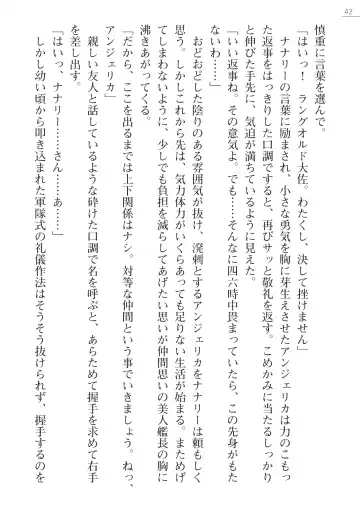 42
慎重に言葉を選んで。
「はいっ！　ラングオルド大佐。わたくし、決して挫けません」
ナナリーの言葉に励まされ、小さな勇気を胸に芽生えさせたアンジェリカは力のこもっ
た返事をはっきりした口調ですると、再びサッと敬礼を返す。こめかみに当たるしっかり
と伸びた手先に、気迫が満ちているように見えた。
「いい返事ね。その意気よ。でも……そんなに四六時中畏まっていたら、この先身がもた
ないわ……」
おどおどした陰りのある雰囲気が抜け、溌剌とするアンジェリカをナナリーは頼もしく
思う。しかしこれから先は、気力体力がいくらあっても足りない生活が始まる。まためげ
てしまわないように、少しでも負担を減らしてあげたい思いが仲間思いの美人艦長の胸に
沸きあがってくる。
「だから、ここを出るまでは上下関係はナシ。対等な仲間という事でいきましょう。ねっ、
アンジェリカ」
親しい友人と話しているような砕けた口調で名を呼ぶと、あらためて握手を求めて右手
を差し出す。
「はいっ、ナナリー……さん……あ……」
しかし幼い頃から叩き込まれた軍隊式の礼儀作法はそうそう抜けられず、握手するのを